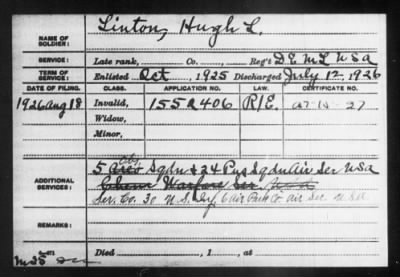 Linton, Hugh L.
NAME OF SOLDIER:
SERVICE: Late rank, Co. , Reg't D E M L USA
TERM OF SERVICE: Enlisted Oct , 1925 Discharged July 12, 1926
DATE OF FILING. CLASS. APPLICATION NO. LAW. CERTIFICATE NO.
1926 Aug 18 Invalid, 1552406 R/E. 27
Widow,
Minor,
5 Sqdn & 24 Pur Sqdn Air Ser USA
ADDITIONAL SERVICES: Warfare Ser
Ser. Co. 30 U.S. Inf 6 Air Park Co air Ser U.S.A
REMARKS:
Died , 1 , at